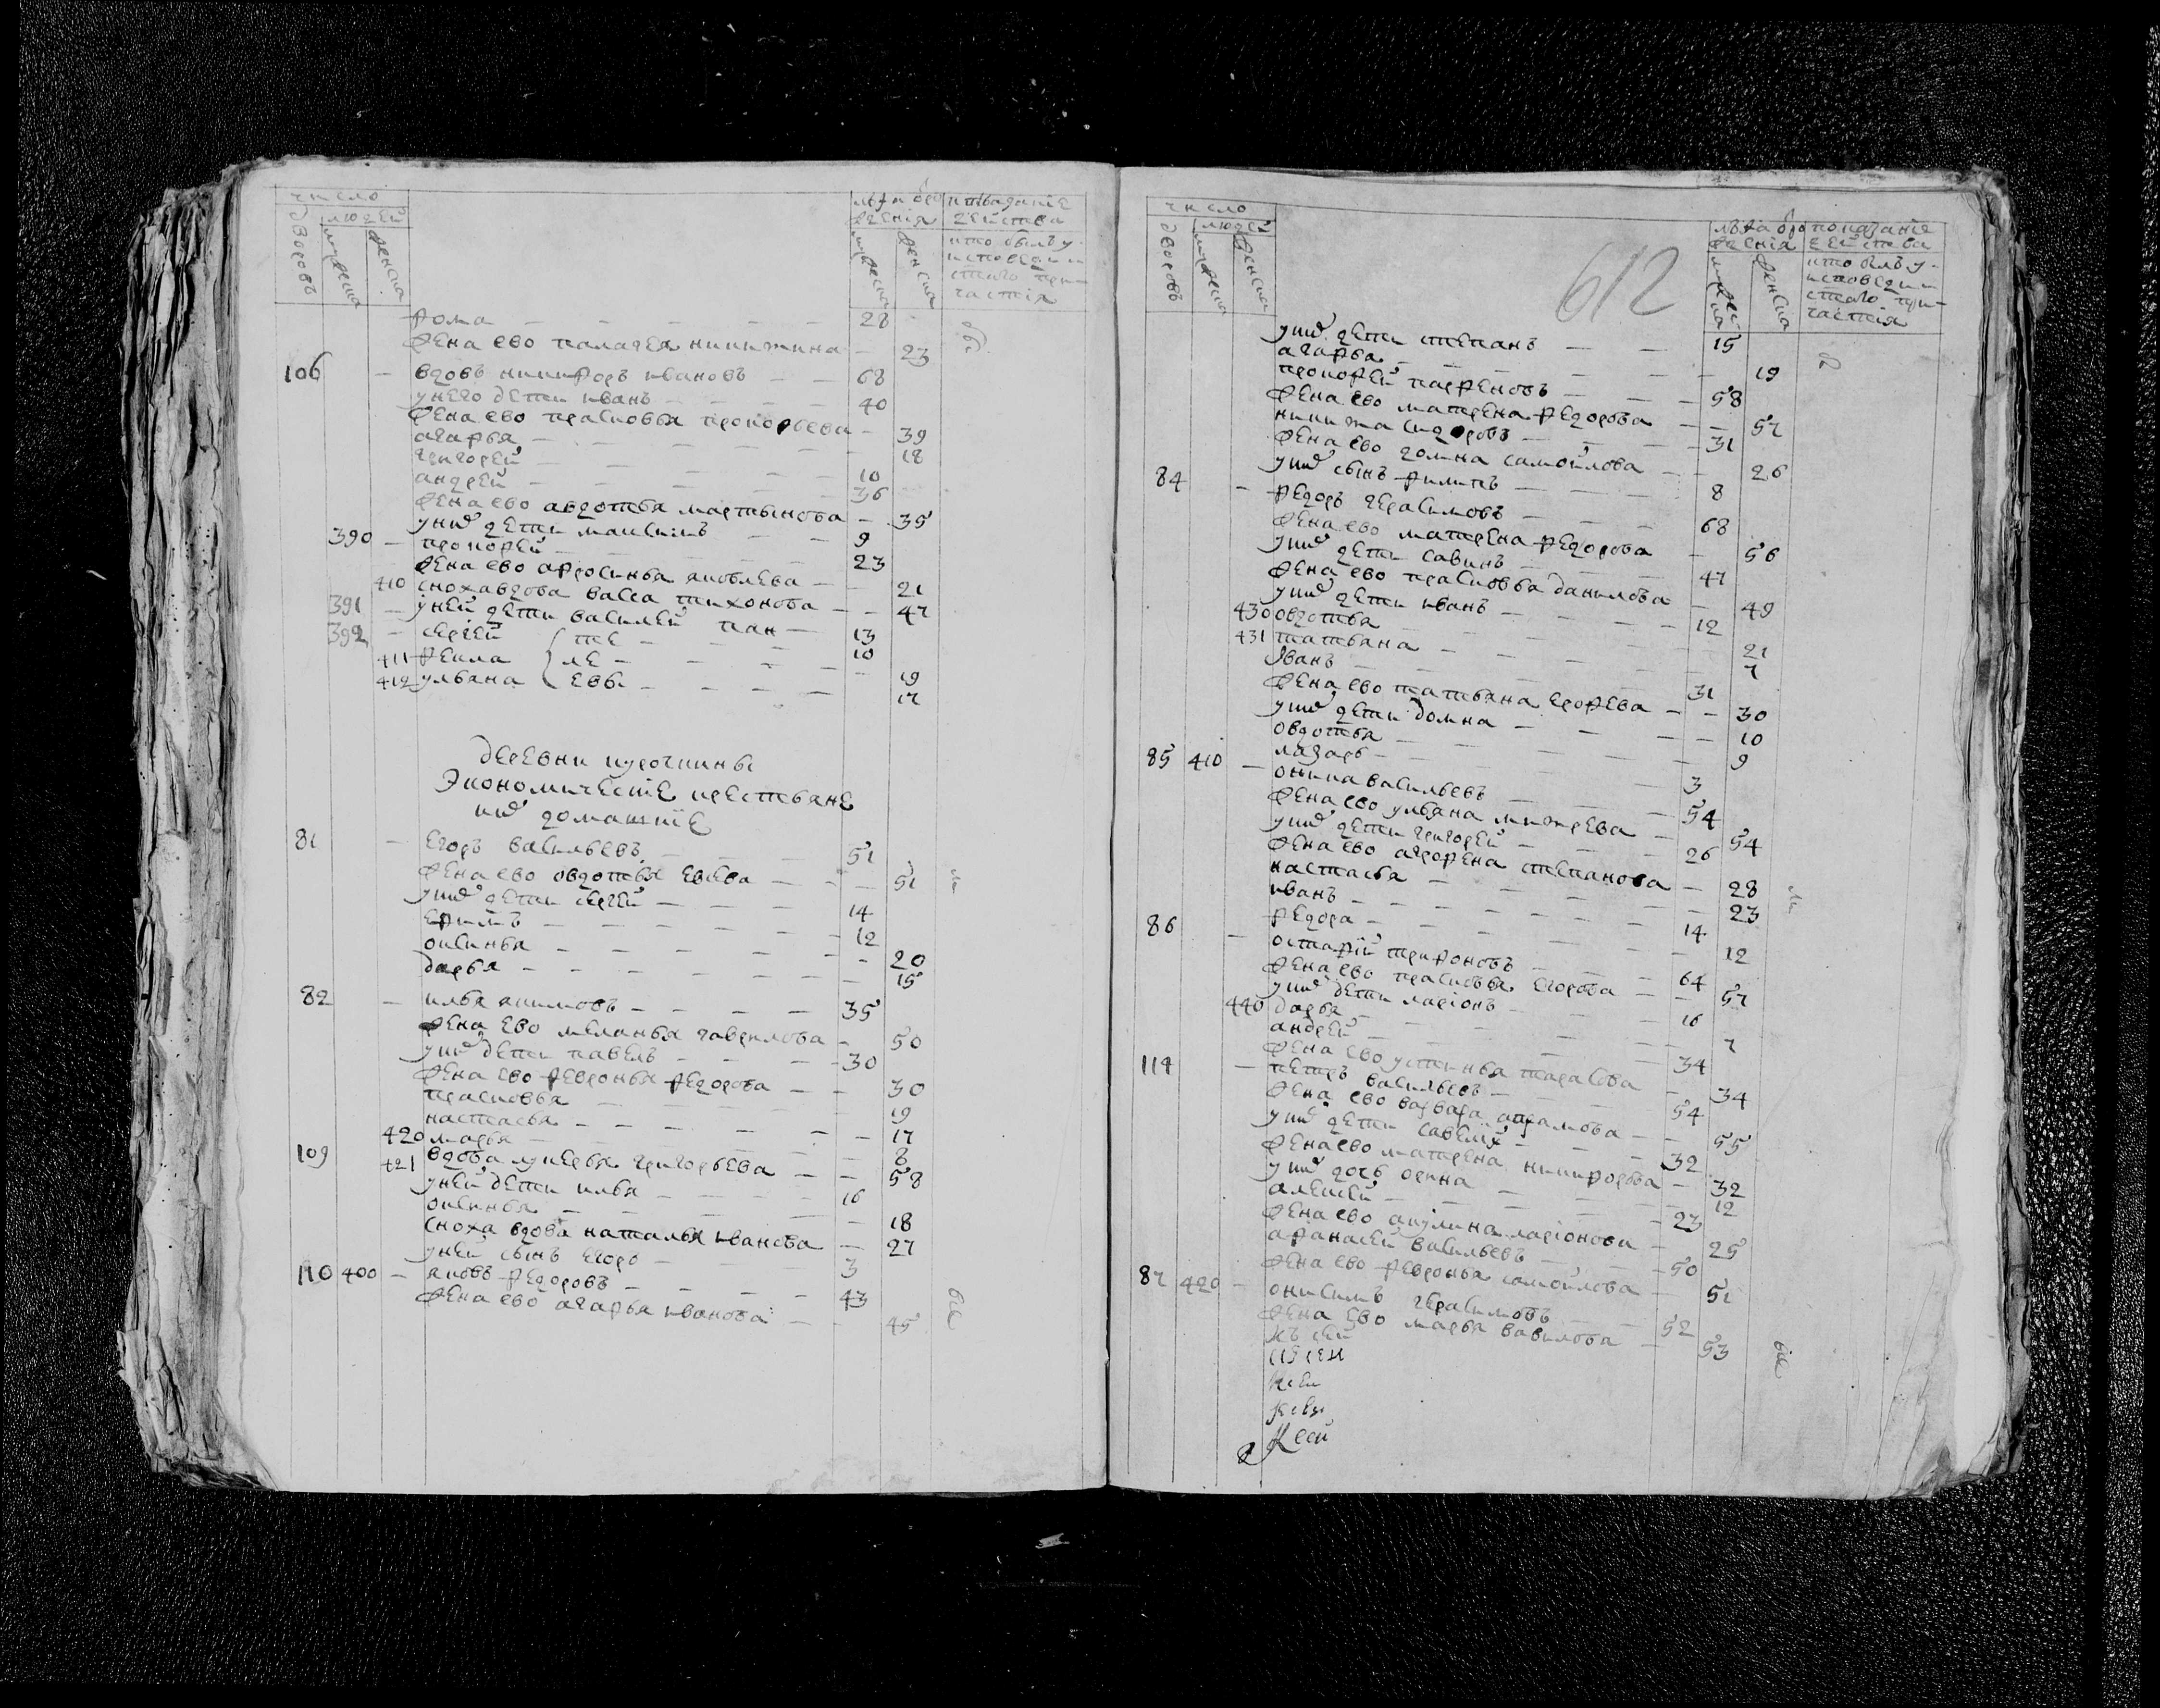 число
людей
дворовъ
мужеска
женска
лѣта отъ рож
дения
мужеска
женска
показание
действа
кто былъ у
исповеди и
святаго при-
частия
Фома 28
жена ево палагея никитина 23
106 вдовъ никифоръ ивановъ 68
у него дети иванъ 40
жена ево прасковья прокофьева 39
агафья 18
григорей 10
андрей 36
жена ево авдотья мартынова 35
у них дети максимъ 9
390 прокофей 23
жена ево афросинья яковлева 21
410 сноха вдова васса тихонова 47
391 у ней дети василей 13
392 сергей 10
411 фекла 19
412 ульяна 17
пан
те
ле
евы
деревни курочкины
Экономические крестьяне
и их домашние
81 егоръ васильевъ 51
жена ево овдотья евсева 51
у них дети сергей 14
ефимъ 12
оксинья 20
дарья 15
82 илья якимовъ 35
жена ево меланья гаврилова 50
у них дети павелъ 30
жена ево февронья федорова 30
прасковья 19
настасья 17
420 марья 8
109 421 вдова лукерья григорьева 58
у ней дети илья 16
оксинья 18
сноха вдова наталья иванова 27
у ней сынъ егоръ 3
110 400 яковъ федоровъ 43
жена ево агафья иванова 45
612
число
людей
дворовъ
мужеска
женска
лѣта отъ рож
дения
мужеска
женска
показание
действа
кто былъ у
исповеди и
святаго при-
частия
у них дети степанъ 15
агафья 19
прокофей парфеновъ 58
жена ево матрена федорова 57
никита сидоровъ 31
жена ево домна самойлова 26
у них сынъ филипъ 8
84 федоръ герасимовъ 68
жена ево матрена федорова 56
у них дети савинъ 47
жена ево прасковья данилова 49
у них дети иванъ 12
430 овдотья 21
431 татьяна 7
Иванъ 31
жена ево татьяна ерофева 30
у них дети домна 10
овдотья 9
лазарь 3
85 410 оника васильевъ 54
жена ево ульяна митрева 54
у них дети григорей 26
жена ево агрофена степанова 28
настасья 23
иванъ 14
федора 12
86 остафий трифоновъ 64
жена ево прасковья егорова 57
у них дети ларионъ 16
440 дарья 7
андрей 34
жена ево устинья тарасова 34
114 петръ васильевъ 54
жена ево варвара абрамова 55
у них дети савелий 32
жена ево матрена никифорова 32
у них дочь орина 12
алексей 23
жена ево акулина ларионова 25
афанасей васильевъ 50
жена ево февронья самойлова 51
87 420 онисимъ герасимовъ 52
жена ево марья вавилова 53
къ сей